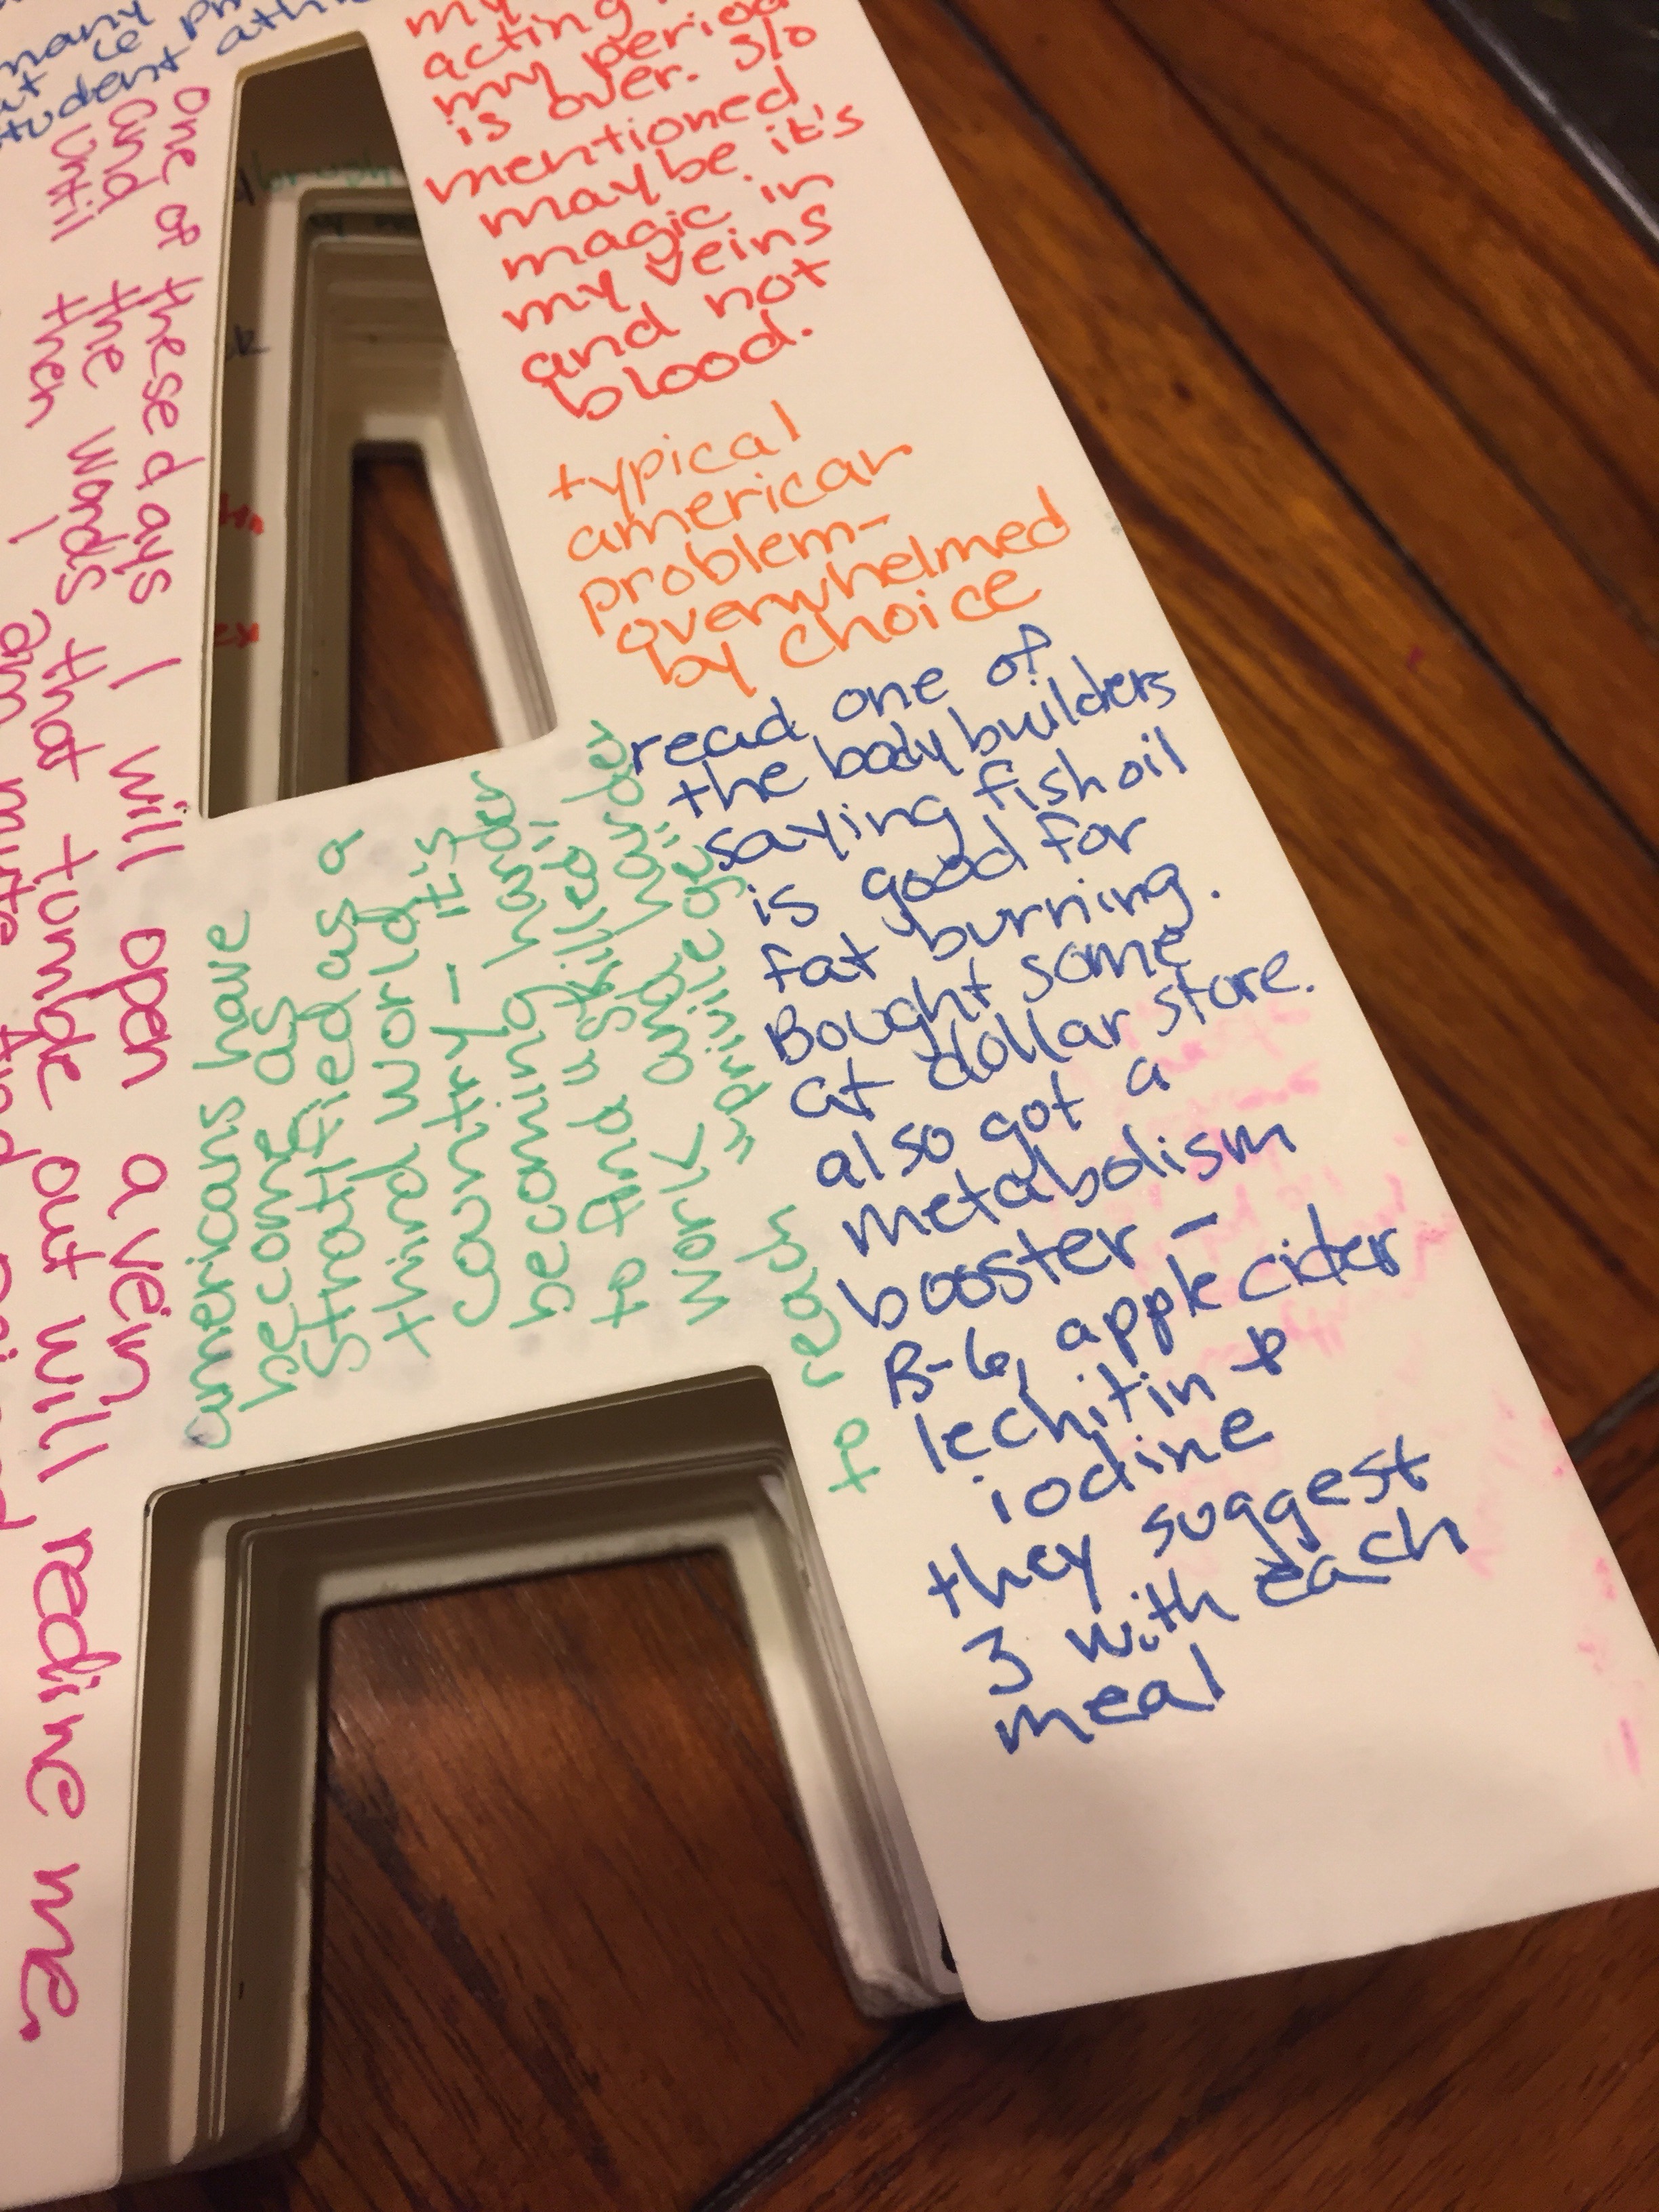 many
student
my
acting
my period
is over. s/o
mentioned
maybe it's
magic in
my veins
and not
blood.
typical
american
problem-
overwhelmed
by choice
read one of
the body builders
saying fish oil
is good for
fat burning.
Bought some
at dollar store.
also got a
metabolism
booster -
B-6, apple cider
lechitin &
iodine
they suggest
3 with each
meal
americans have
become as
stratified as a
third world
country - it's
becoming harder
to find "skilled"
work and
"privileged"
to reach
one of these days I will open a vein
and the words that tumble out will redifine me.
until then I am mute